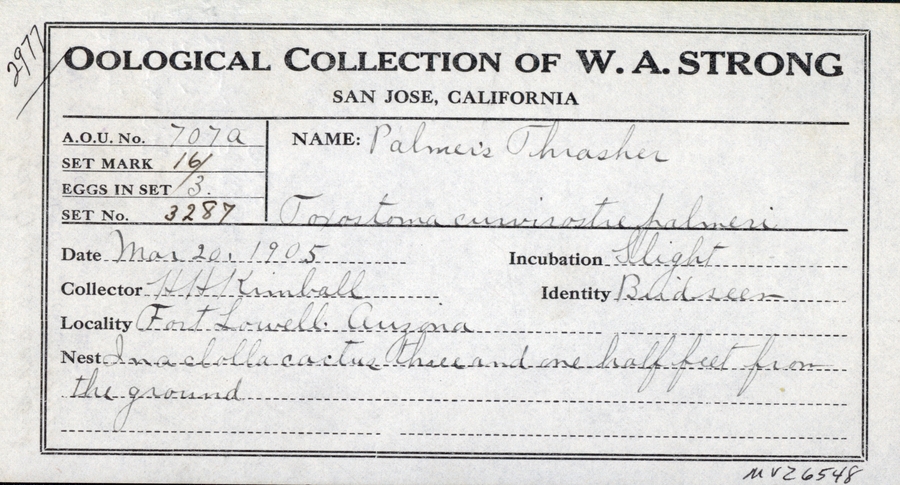 2977
OOLOGICAL COLLECTION OF W. A. STRONG
SAN JOSE, CALIFORNIA
A.O.U. No. 707a
SET MARK 16/
EGGS IN SET 3.
SET No. 3287
NAME: Palmer's Thrasher
Toxostoma curvirostre palmeri
Date Mar 20. 1905
Incubation Slight
Collector H H Kimball
Identity Bird seen
Locality Fort Lowell. Arizona
Nest In a cholla cactus three and one half feet from
the ground
MVZ6548